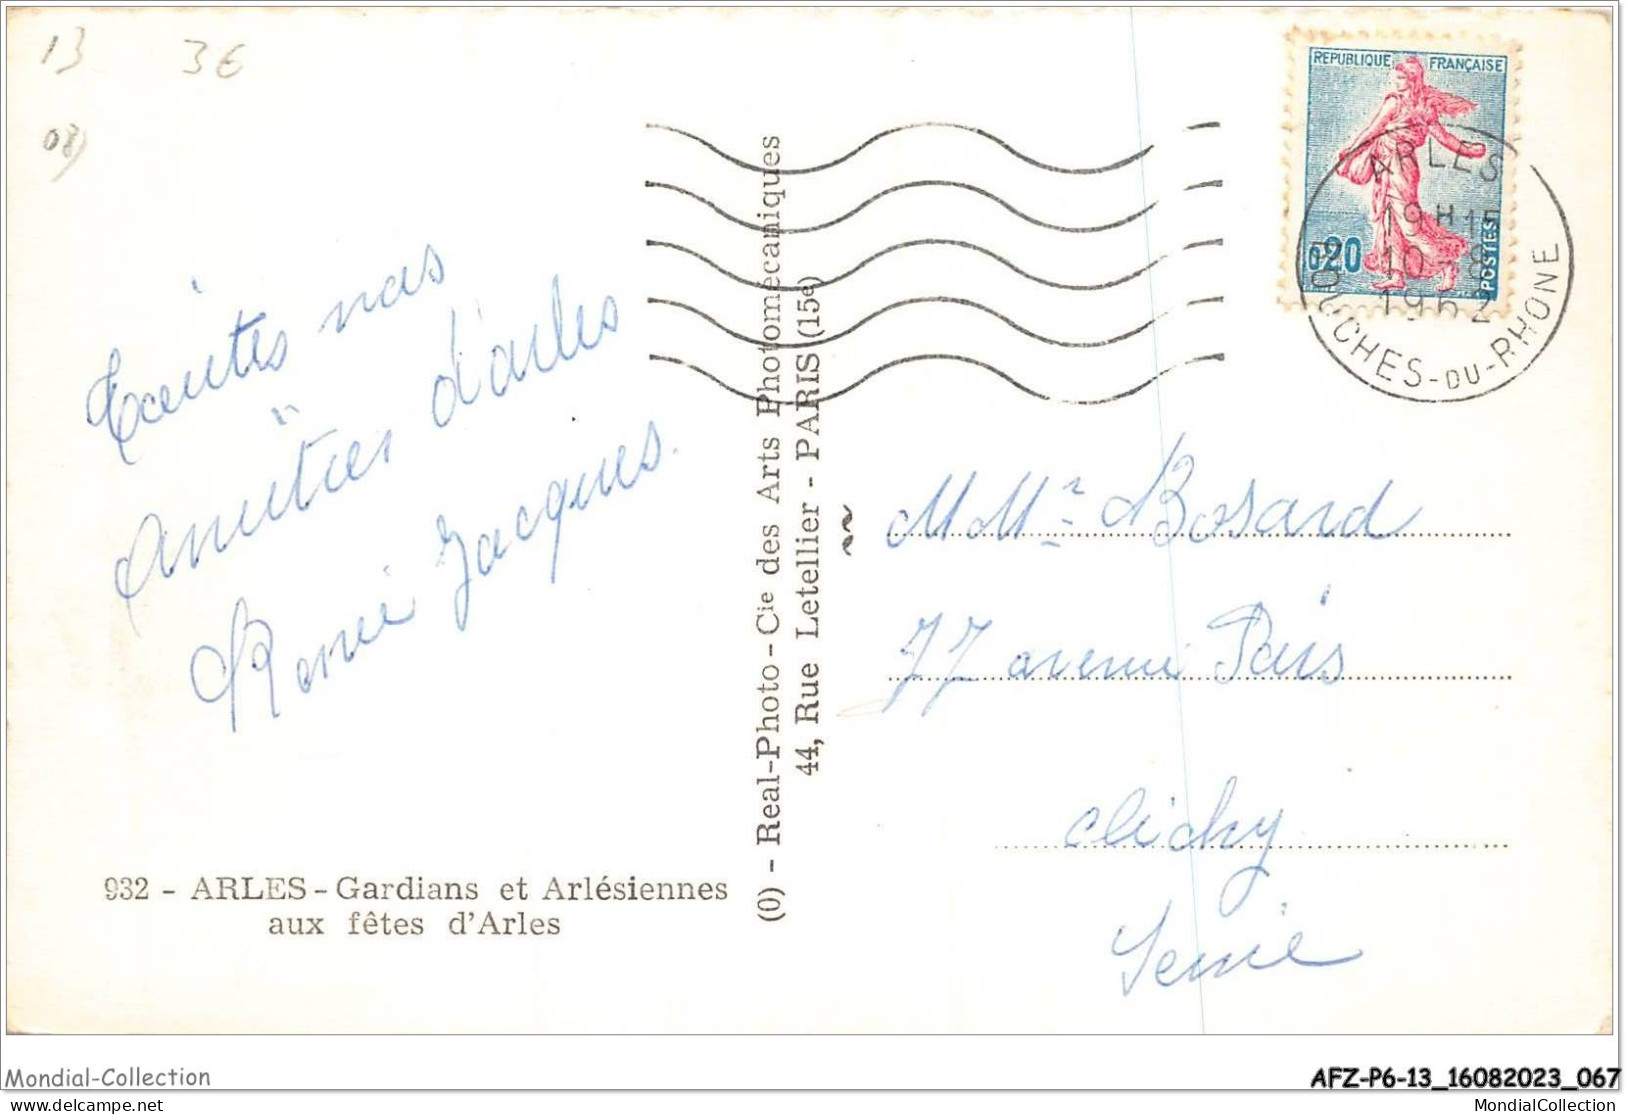 13 3€
08)
REPUBLIQUE FRANÇAISE
0,20
POSTES
ARLES
19H15
10-8
1962
BOUCHES-DU-RHONE
Toutes nos
amitiés d'arles
Renée Jacques.
932 - ARLES - Gardians et Arlésiennes
aux fêtes d'Arles
(0) - Real-Photo - Cie des Arts Photomécaniques
44, Rue Letellier - PARIS (15e)
M Mr Bosard
77 avenue Paris
Clichy
Seine
Mondial-Collection
AFZ-P6-13_16082023_067
delcampe.net
MondialCollection